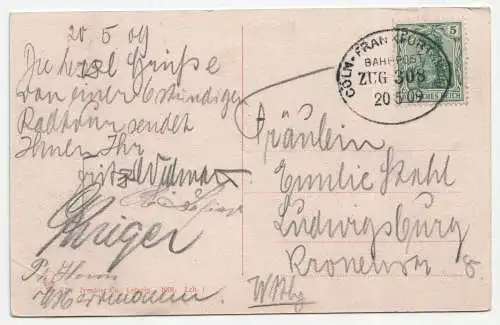 20 5 09
Die herzl Grüße
von einer 6stündigen
Radtour sendet
Ihnen Ihr
Fritz Widmar
Geiger
Hartmann
CÖLN-FRANKFURT
BAHNPOST
ZUG 308
20 5 09
5
DEUTSCHES REICH
Fräulein
Emilie Stahl
Ludwigsburg
Kronenstr 8
Wttbg
Leipzig 1906